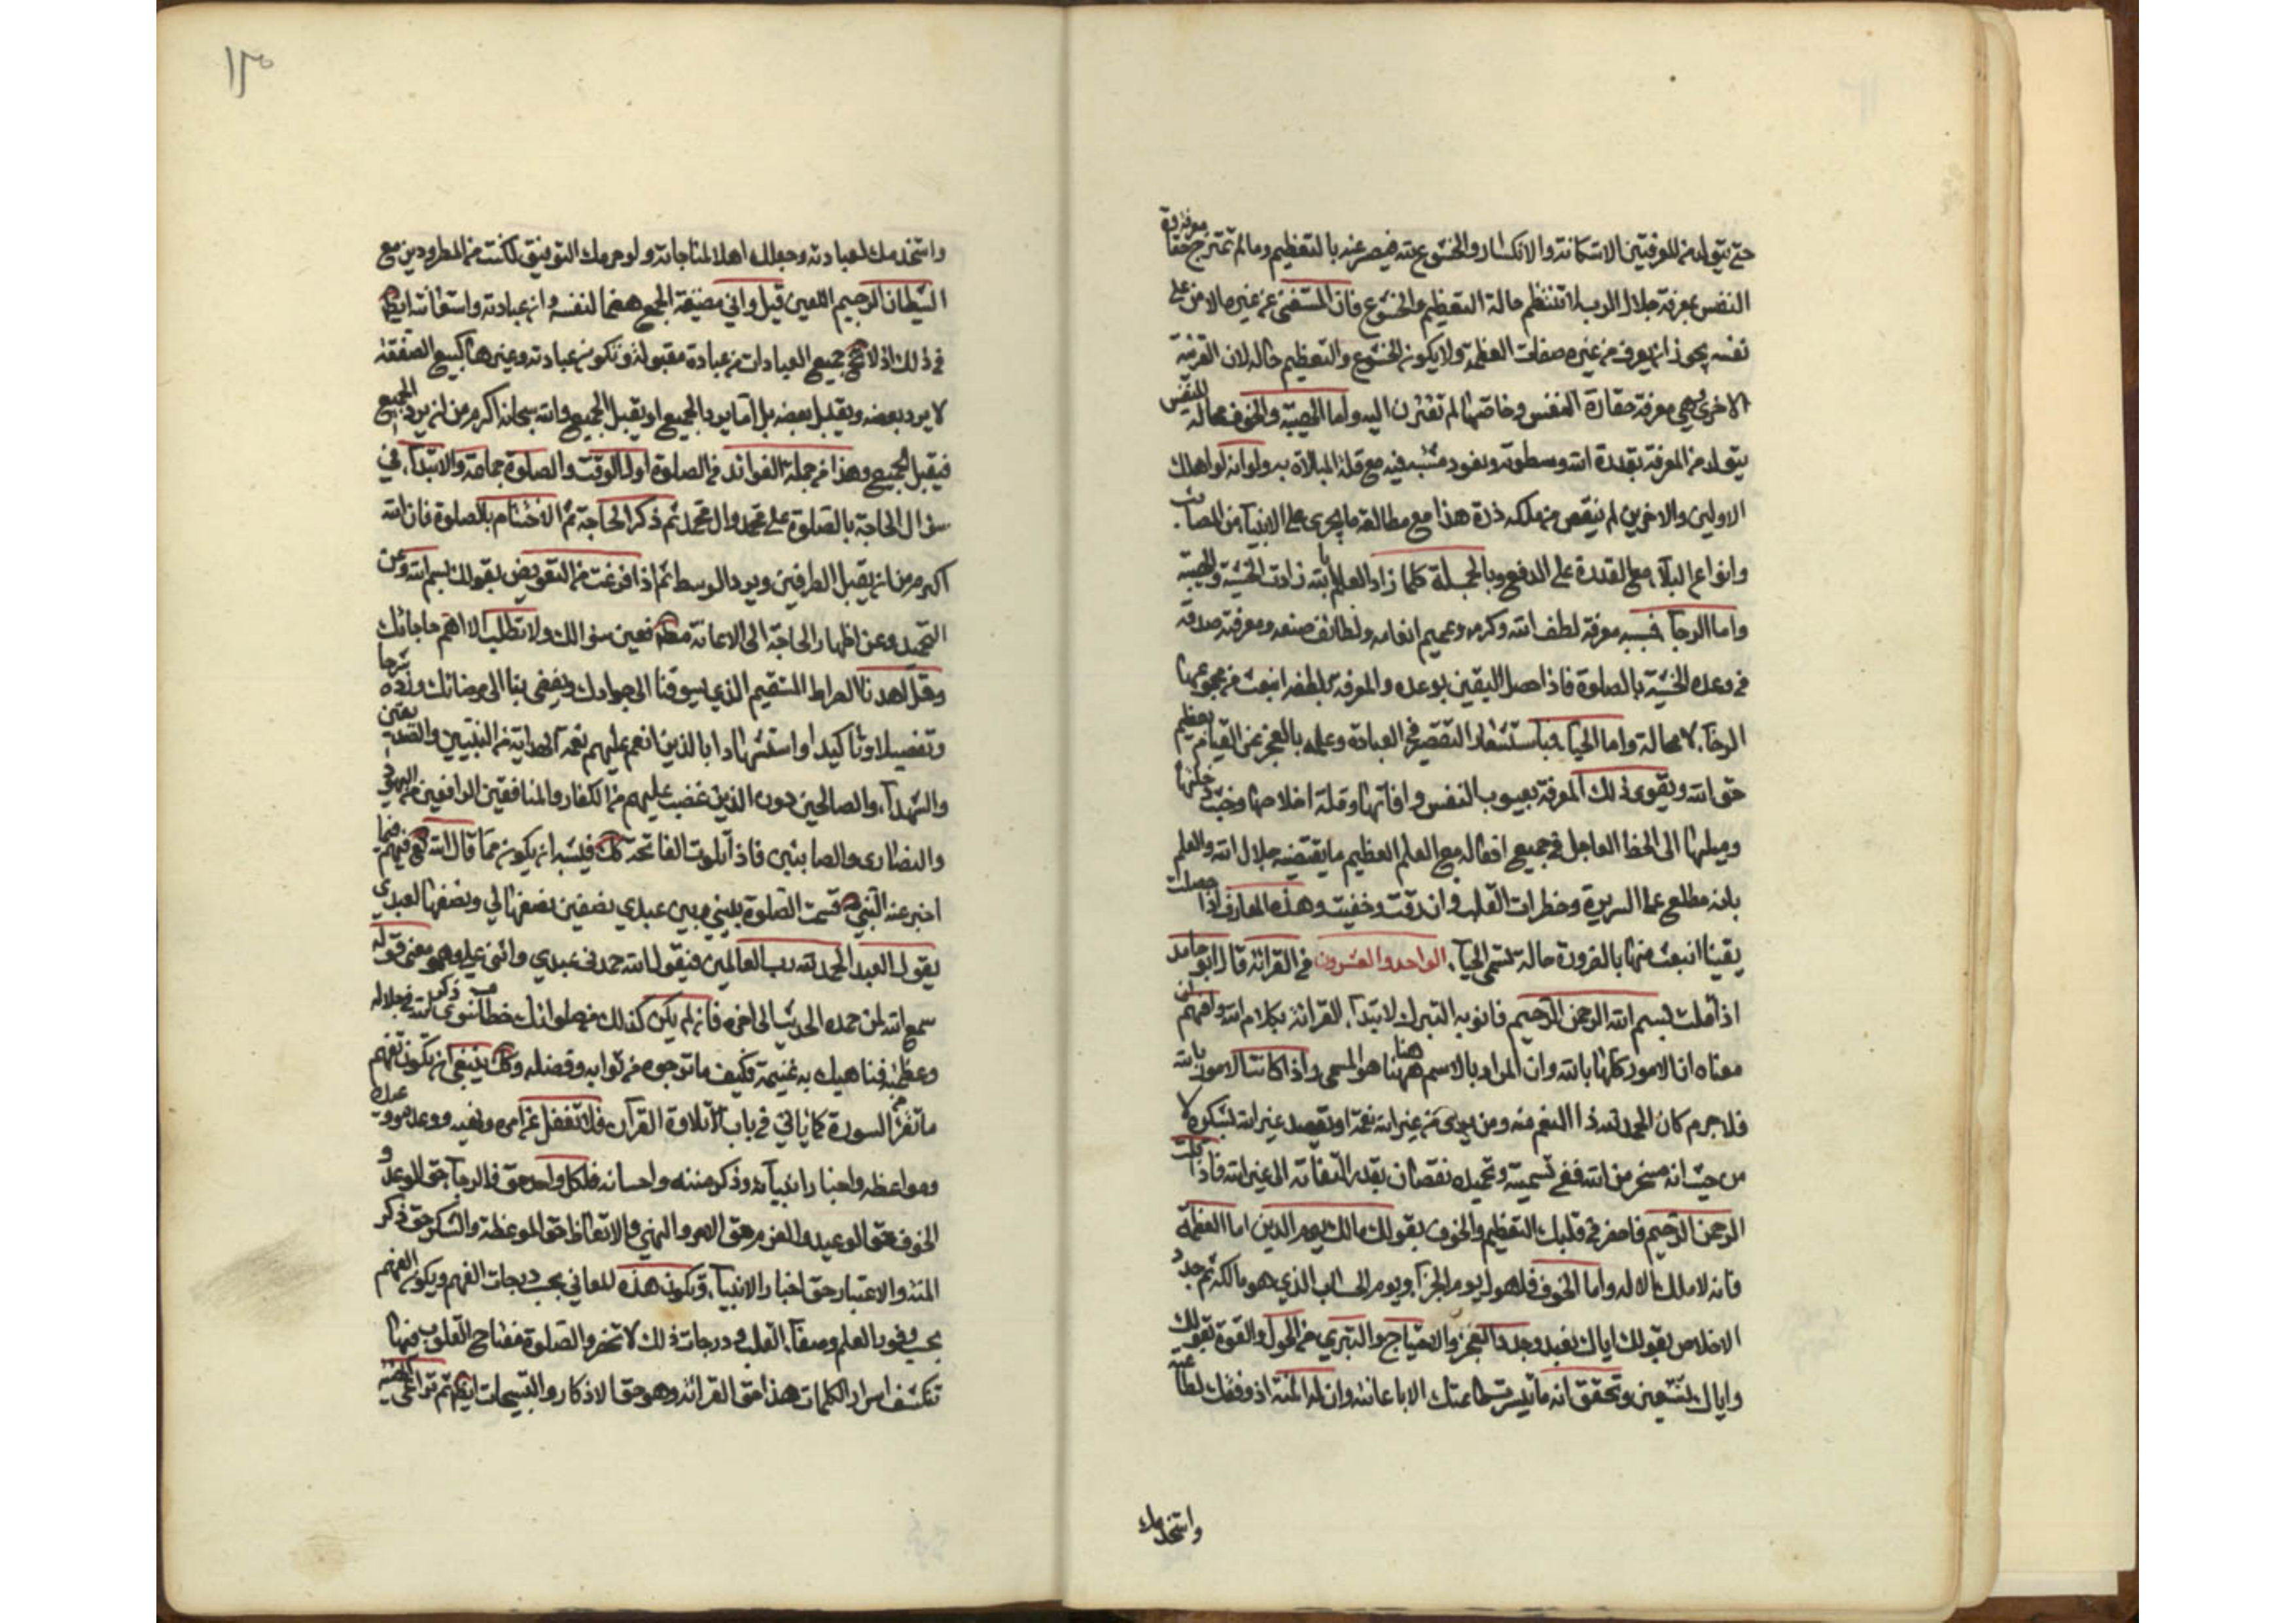 حتى يتولد من المعرفتين الاستكانة والانكسار والخشوع لله فيعبر عنه بالتعظيم وما لم تمتزج معرفة حقارة
النفس بمعرفة جلال الرب لا تنتظم حالة التعظيم والخشوع فان المستغنى عن غيره الامن على
نفسه يجوز ان يعرف من غيره صفات العظمة ولا يكون الخشوع والتعظيم حاله لان القرينة
الاخرى وهي معرفة حقارة النفس وحاجتها لم تقترن اليه واما الهيبة والخوف فحالة للنفس
يتولد من المعرفة بقدرة الله وسطوته ونفوذ مشيته فيه مع قلة المبالاة به ولو انه لو اهلك
الاولين والاخرين لم ينقص من ملكه ذرة هذا مع مطالعة ما يجري على الانبياء من المصائب
وانواع البلاء مع القدرة على الدفع وبالجملة كلما زاد العلم بالله زادت الخشية والهيبة
واما الرجاء فسببه معرفة لطف الله وكرمه وعميم انعامه ولطائف صنعه ومعرفة صدقه
في وعده الجنة بالصلوة فاذا حصل اليقين بوعده والمعرفة بلطفه انبعث من مجموعهما
الرجاء لا محالة واما الحياء فباستشعار التقصير في العبادة وعلمه بالعجز عن القيام بعظيم
حق الله ويقوى ذلك المعرفة بعيوب النفس وافاتها وقلة اخلاصها وخبث دخلتها
وميلها الى الحظ العاجل في جميع افعاله مع العلم بعظيم ما يقتضيه جلال الله والعلم
بانه مطلع على السريرة وخطرات القلب وان دقت وخفيت وهذه المعارف اذا حصلت
يقينا انبعث منها بالضرورة حالة تسمى الحياء الواحد والعشرون في القرائة قال ابو حامد
اذا قلت بسم الله الرحمن الرحيم فانو به التبرك لابتداء القرائة بكلام الله وافهم ان
معناه ان الامور كلها بالله وان المراد بالاسم ههنا هو المسمى واذا كانت الامور بالله
فلا جرم كان الحمد لله اذ النعم منه ومن يرى من غير الله نعمة او يقصد غير الله لشكره لا
من حيث انه مسخر من الله ففي تسميته وتحميده نقصان بقدر التفاته الى غير الله فاذا قلت
الرحمن الرحيم فاحضر في قلبك التعظيم والخوف بقولك مالك يوم الدين اما العظمة
فانه لا ملك الا له واما الخوف فلهول يوم الجزاء ويوم الحساب الذي هو مالكه ثم جدد
الاخلاص بقولك اياك نعبد وجدد العجز والاحتياج والتبري من الحول والقوة بقولك
واياك نستعين وتحقق انه ما تيسرت طاعتك الا باعانته وان له المنة اذ وفقك لطاعته
واستخدمك
١٣٠
واستخدمك لعبادته وجعلك اهلا لمناجاته ولو حرمك التوفيق لكنت من المطرودين مع
الشيطان الرجيم اللعين قيل واتي بصيغة الجمع هضما لنفسه وان عبادته واستعانته ايضا
في ذلك اذ لا تخ جميع العبادات من عبادة مقبولة وتكون عبادته وغيرها كبيع الصفقة
لا يرد بعضه ويقبل بعضه بل اما يرد الجميع او يقبل الجميع والله سبحانه اكرم من ان يرد الجميع
فيقبل الجميع وهذا من جملة الفوائد في الصلوة اول الوقت والصلوة جماعة والابتداء في
سؤال الحاجة بالصلوة على محمد وال محمد ثم ذكر الحاجة ثم الاختتام بالصلوة فان الله
اكرم من ان يقبل الطرفين ويرد الوسط ثم اذا فرغت من التفويض بقولك بسم الله وعن
التحميد وعن اظهار الحاجة الى الاعانة مط فعين سؤالك ولا تطلب الا اهم حاجاتك
وقل اهدنا الصراط المستقيم الذي يسوقنا الى جوارك ويفضي بنا الى مرضاتك وزده شرحا
وتفصيلا وتاكيدا واستشهادا بالذين انعم عليهم نعمة الهداية من النبيين والصديقين
والشهداء والصالحين دون الذين غضب عليهم من الكفار والمنافقين الزائغين من اليهود
والنصارى والصابئين فاذا تلوت الفاتحة كك فيشبه ان يكون ممن قال الله تع فيهم فيما
اخبر عنه النبي ص قسمت الصلوة بيني وبين عبدي نصفين نصفها لي ونصفها لعبدي
يقول العبد الحمد لله رب العالمين فيقول الله حمدني عبدي واثنى علي وهو معنى قوله
سمع الله لمن حمده الحديث الى اخره فان لم يكن كذلك من صلواتك حظ سوى ذكر الله في جلاله
وعظمته فناهيك به غنيمة فكيف ما ترجوه من ثوابه وفضله وكك ينبغي ان يكون تفهم
ما تقرء من السورة كما ياتي في باب تلاوة القرآن فلا تغفل عن امره ونهيه ووعده ووعيده
ومواعظه واخبار انبيائه وذكر مننه واحسانه فلكل واحد حق فالرجاء حق الوعد و
الخوف حق الوعيد والعزم حق الامر والنهي والاتعاظ حق الموعظة والشكر حق ذكر
المنة والاعتبار حق اخبار الانبياء وتكون هذه المعاني بحسب درجات الفهم ويكون الفهم
بحسب وفور العلم وصفاء القلب ودرجات ذلك لا تنحصر والصلوة مفتاح القلوب فيها
تنكشف اسرار الكلمات هذا حق القرائة وهو حق الاذكار والتسبيحات ايضا ثم تراعى الهيئة